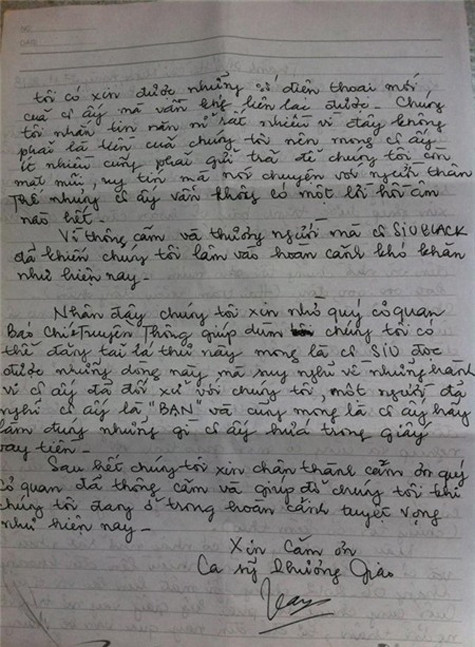 NO.
DATE
tôi có xin được những số điện thoại mới
của cô ấy mà vẫn không liên lạc được - Chúng
tôi nhắn tin năn nỉ rất nhiều vì đây không
phải là tiền của chúng tôi nên mong cô ấy
ít nhiều cũng phải gửi trả để chúng tôi còn
mặt mũi, uy tín mà nói chuyện với người thân
Thế nhưng cô ấy vẫn không có một lời hồi âm
nào hết -
Vì thông cảm và thương người mà cô SIU BLACK
đã khiến chúng tôi lâm vào hoàn cảnh khó khăn
như hiện nay -
Nhân đây chúng tôi xin nhờ quý cơ quan
Báo Chí Truyền Thông giúp dùm chúng tôi có
thể đăng tải lá thư này mong là cô SIU đọc
được những dòng này mà suy nghĩ về những hành
vi cô ấy đã đối xử với chúng tôi, một người đã
nghĩ cô ấy là "BẠN" và cũng mong là cô ấy hãy
làm đúng những gì cô ấy hứa trong giấy
vay tiền -
Sau hết chúng tôi xin chân thành cảm ơn quý
cơ quan đã thông cảm và giúp đỡ chúng tôi khi
chúng tôi đang ở trong hoàn cảnh tuyệt vọng
như hiện nay -
Xin Cảm ơn
Ca sỹ Phương Giao